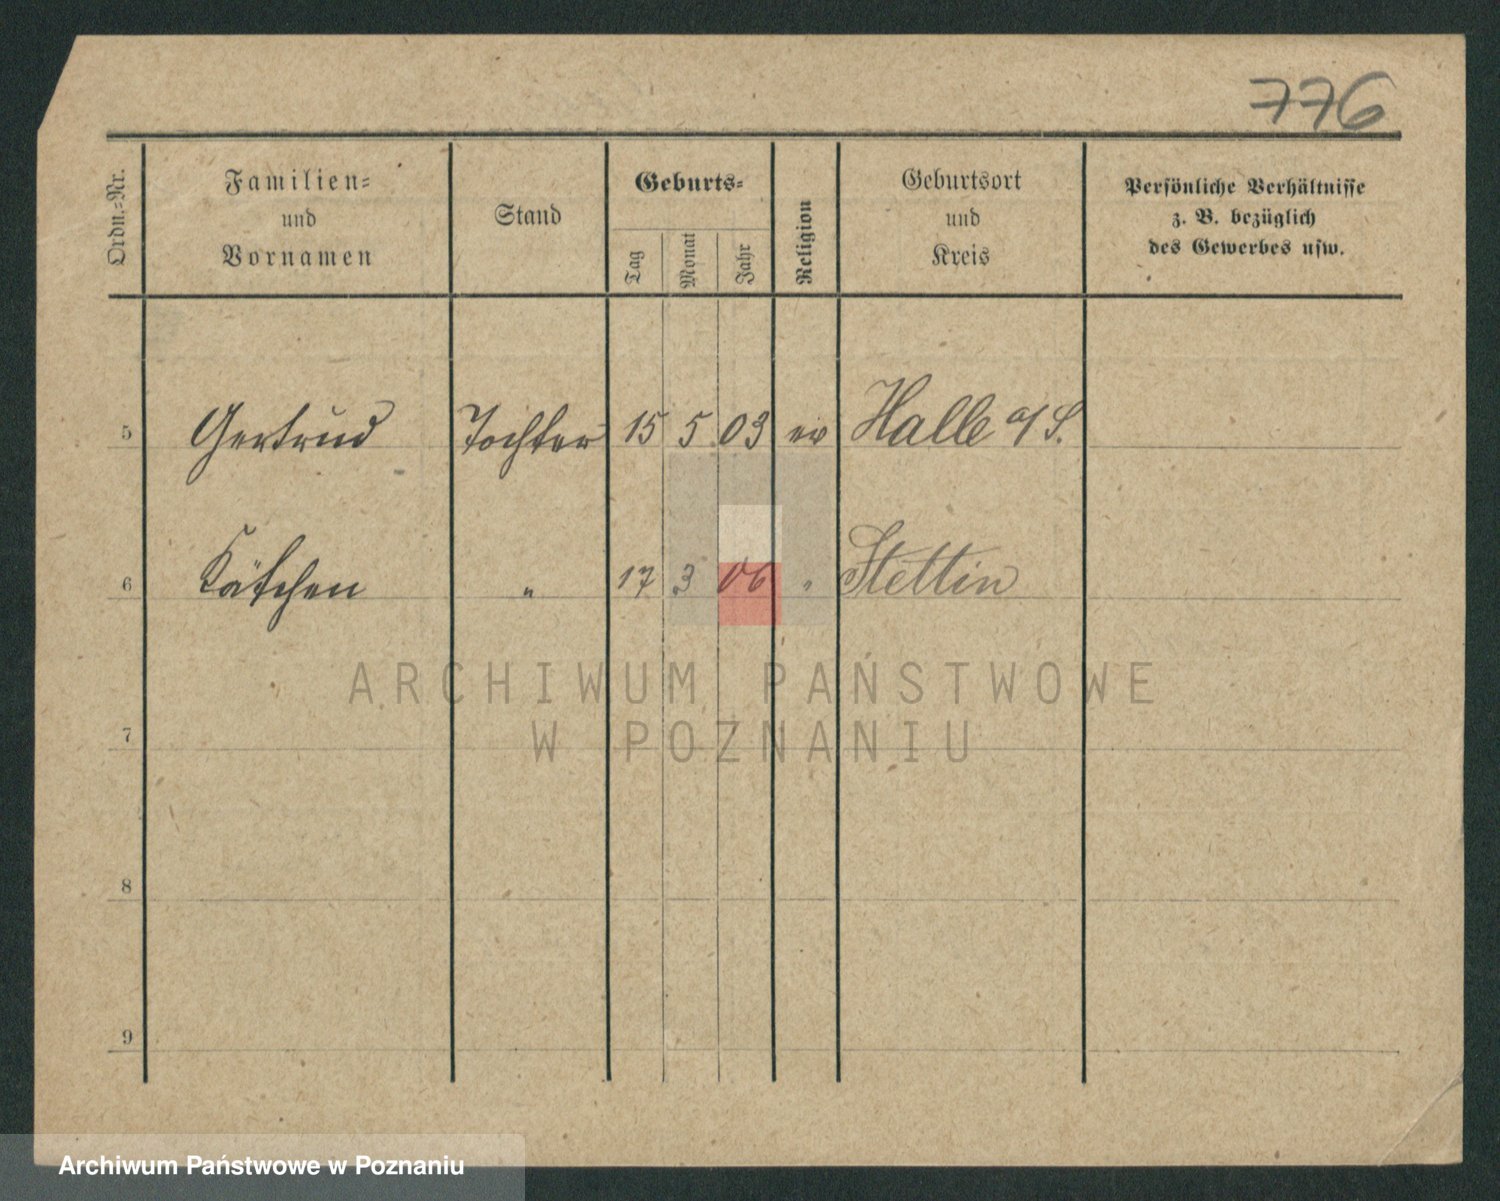 776
Ordn.-Nr.
Familien-
und
Vornamen
Stand
Geburts-
Tag
Monat
Jahr
Religion
Geburtsort
und
Kreis
Persönliche Verhältnisse
z. B. bezüglich
des Gewerbes usw.
5 Gertrud Tochter 15 5 03 ev Halle a/S.
6 Kätchen " 17 3 06 " Stettin
ARCHIWUM PAŃSTWOWE
W POZNANIU
7
8
9
Archiwum Państwowe w Poznaniu